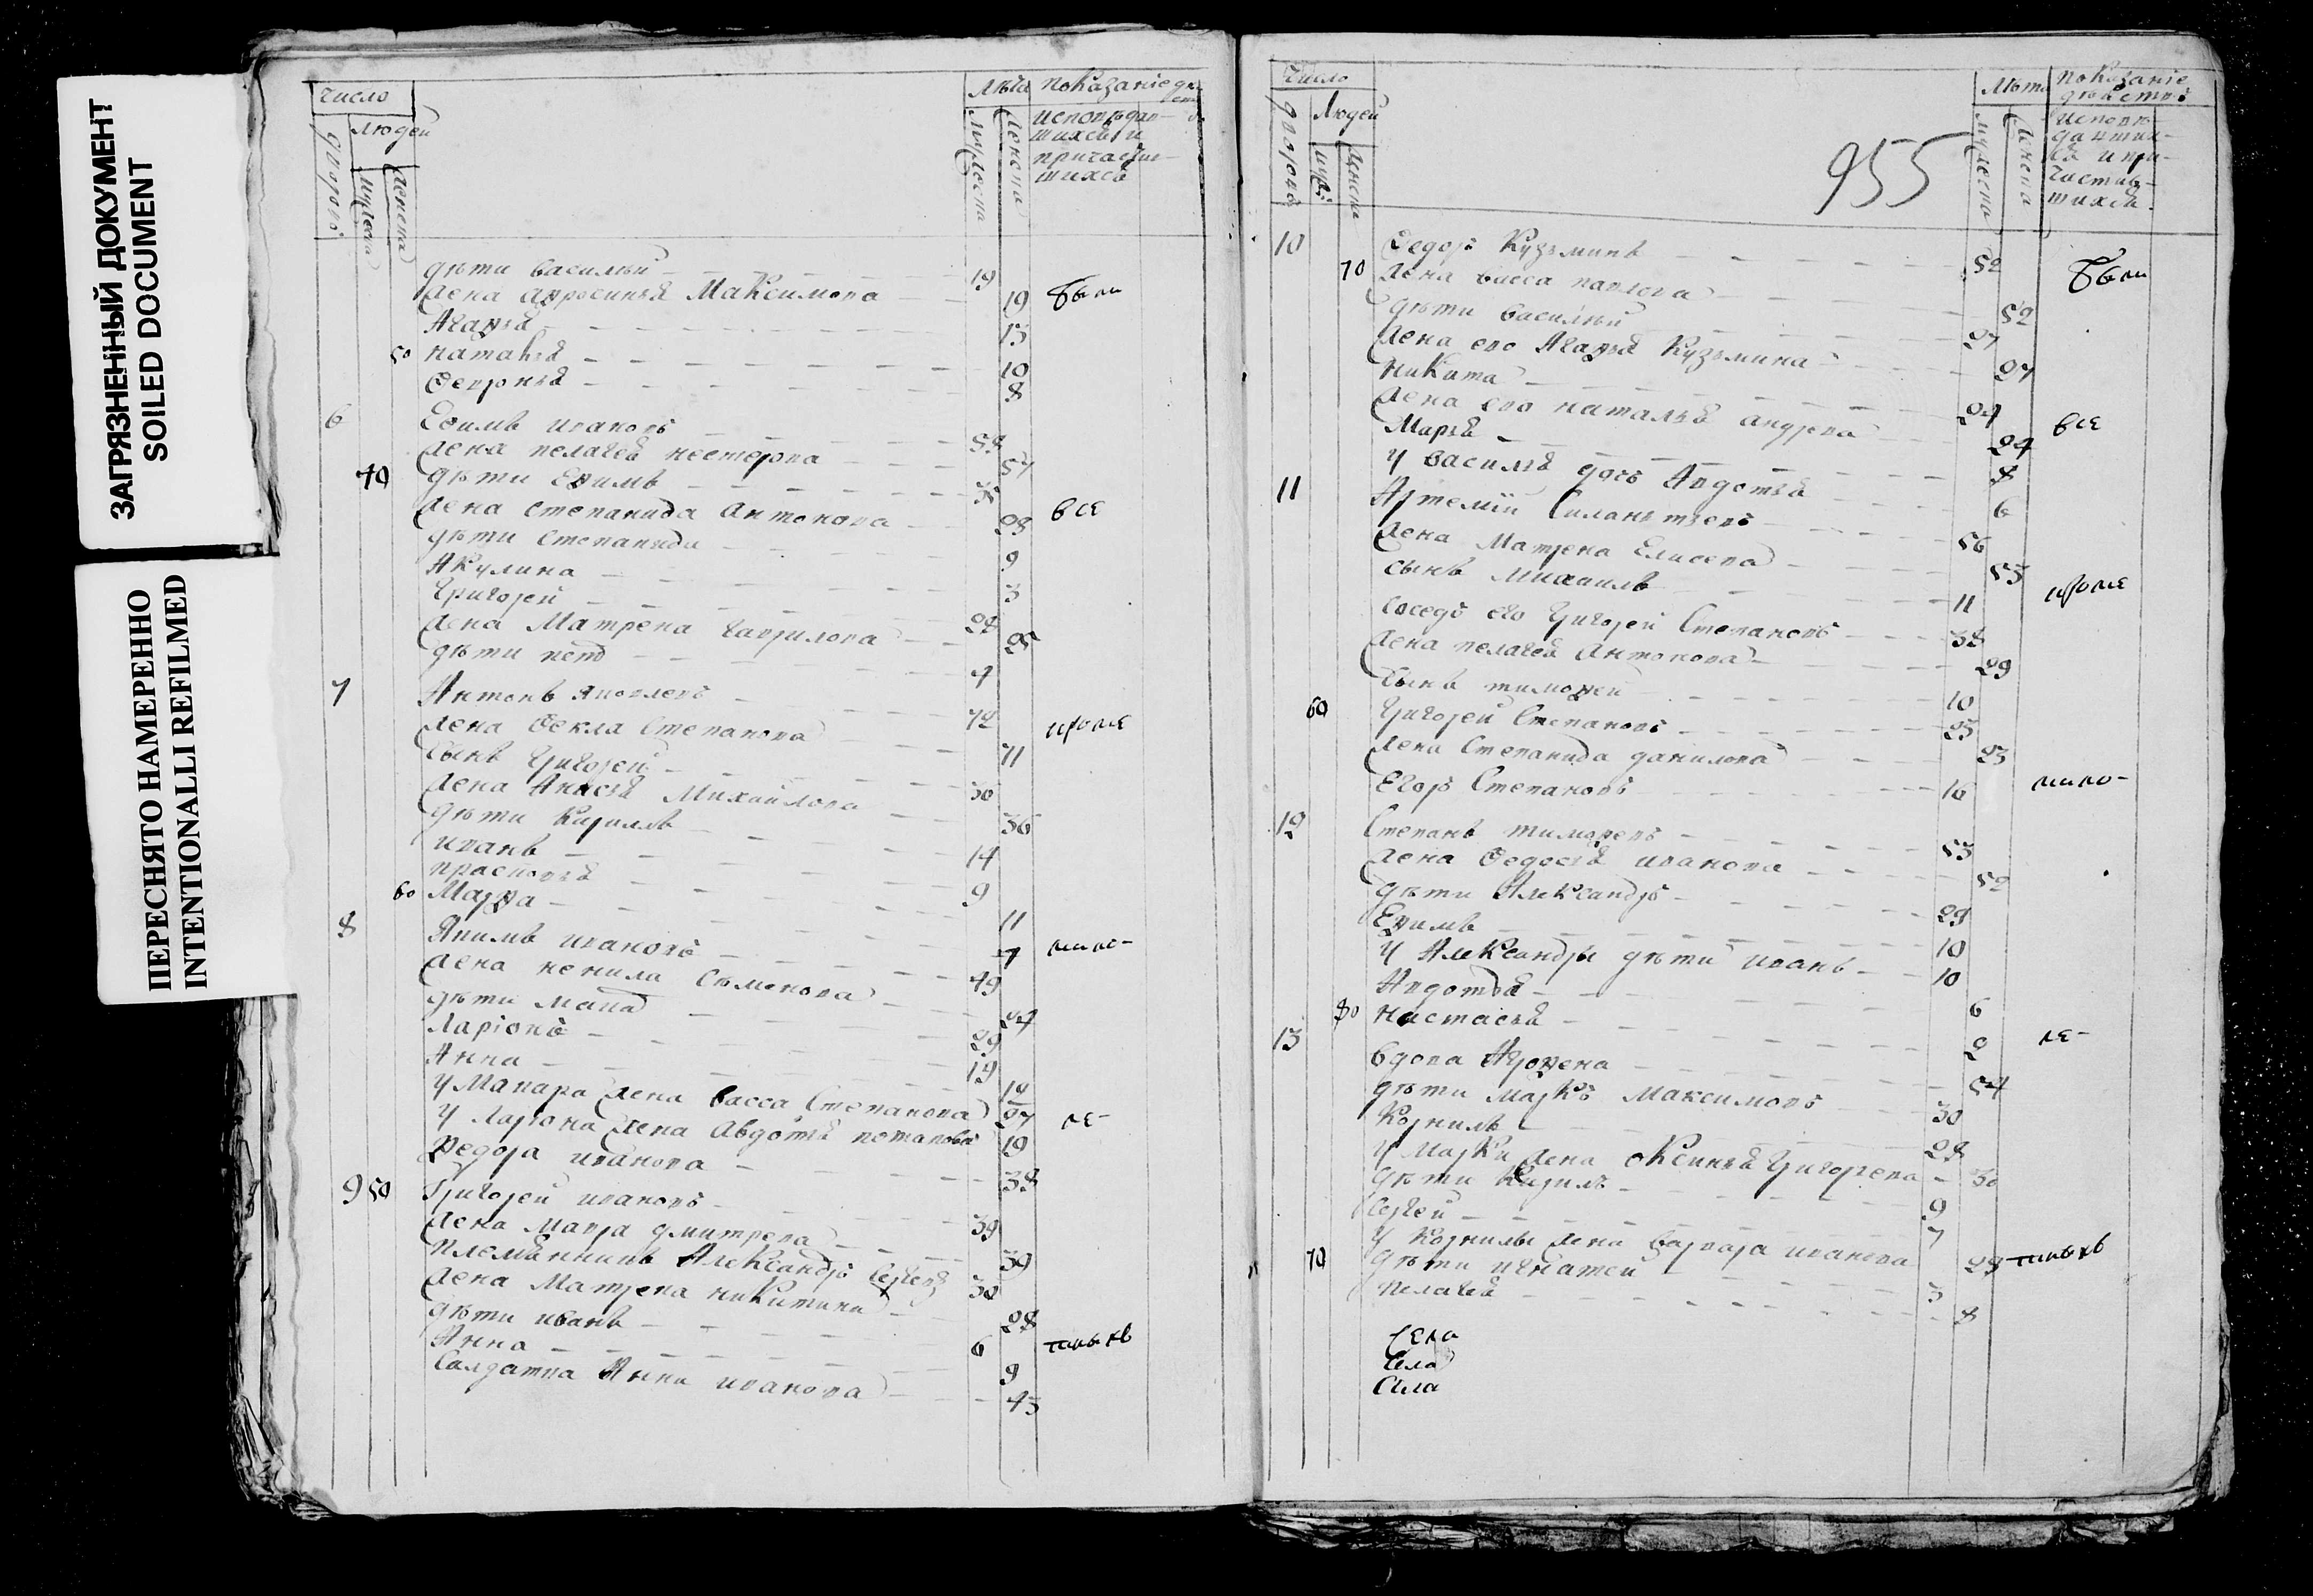 ЗАГРЯЗНЕННЫЙ ДОКУМЕНТ
SOILED DOCUMENT
ПЕРЕСНЯТО НАМЕРЕННО
INTENTIONALLI REFILMED
число
людей
дворовъ
мужеска
женска
лѣта
мужеска
женска
показание
исповѣдав-
шихся и
причастив-
шихся
дѣти василий 19
жена афросинья Максимова 19 были
Агафья 13
50 наталья 10
Февронья 8
6 Ефимъ ивановъ 58
жена пелагея нестерова 57
40 дѣти Ефимъ 35
жена степанида антонова 28 все
дѣти степанида 9
Акулина 3
Григорей 24
жена Матрена гаврилова 25
дѣти петр 4
7 Антонъ яковлевъ 72
жена Фекла Степанова 71 кроме
сынъ Григорей 30
жена Анисья Михайлова 36
дѣти Кирилъ 14
иванъ 9
прасковья 11
60 Марфа 7
8 Якимъ ивановъ 49 мало-
жена ненила Семенова 54
дѣти макар 29
Ларионъ 19
Анна 12
У Макара жена васса Степанова 27
У Лариона жена Авдотья потапова 19 ле-
Федора иванова 38
9 50 Григорей ивановъ 39
жена Мавра дмитрева 39
племянникъ Александръ Сергеевъ 30
жена Матрена никитина 28
дѣти иванъ 6
Анна 9 тныхъ
Салдатка Анна иванова 43
число
дворовъ
людей
муж:
женска
955
лѣта
мужеска
женска
показание
дѣйство
исповѣ-
давши-
ся и при-
частив-
шихся
10 Федоръ Кузьминъ 52
70 жена васса павлова 52 были
дѣти василий 27
жена его Агафья Кузьмина 27
никита 24
жена его наталья андреева 24 все
Марья 8
У василья дочь Авдотья 6
11 Артемий Силантьевъ 56
жена Матрена Елисеева 53
сынъ михаилъ 11 кроме
соседъ его Григорей Степановъ 38
жена пелагея антонова 29
сынъ тимофей 10
60 Григорей Степановъ 25
жена Степанида данилова 23
Егоръ Степановъ 16 мало-
12 Степанъ тимофевъ 53
жена Федосья иванова 52
дѣти Александръ 29
Ефимъ 10
У Александры дѣти иванъ 10
Авдотья 6
80 Настасья 2
13 вдова Аграфена 54 ле-
дѣти Марко Максимовъ 30
Корнилъ 28
У Марки жена оксинья Григорева 30
дѣти Кирилъ 9
Сергей 7
У Корнилы жена варвара иванова 28 тныхъ
70 дѣти игнатей 3
пелагея 8
Села
Села
Села